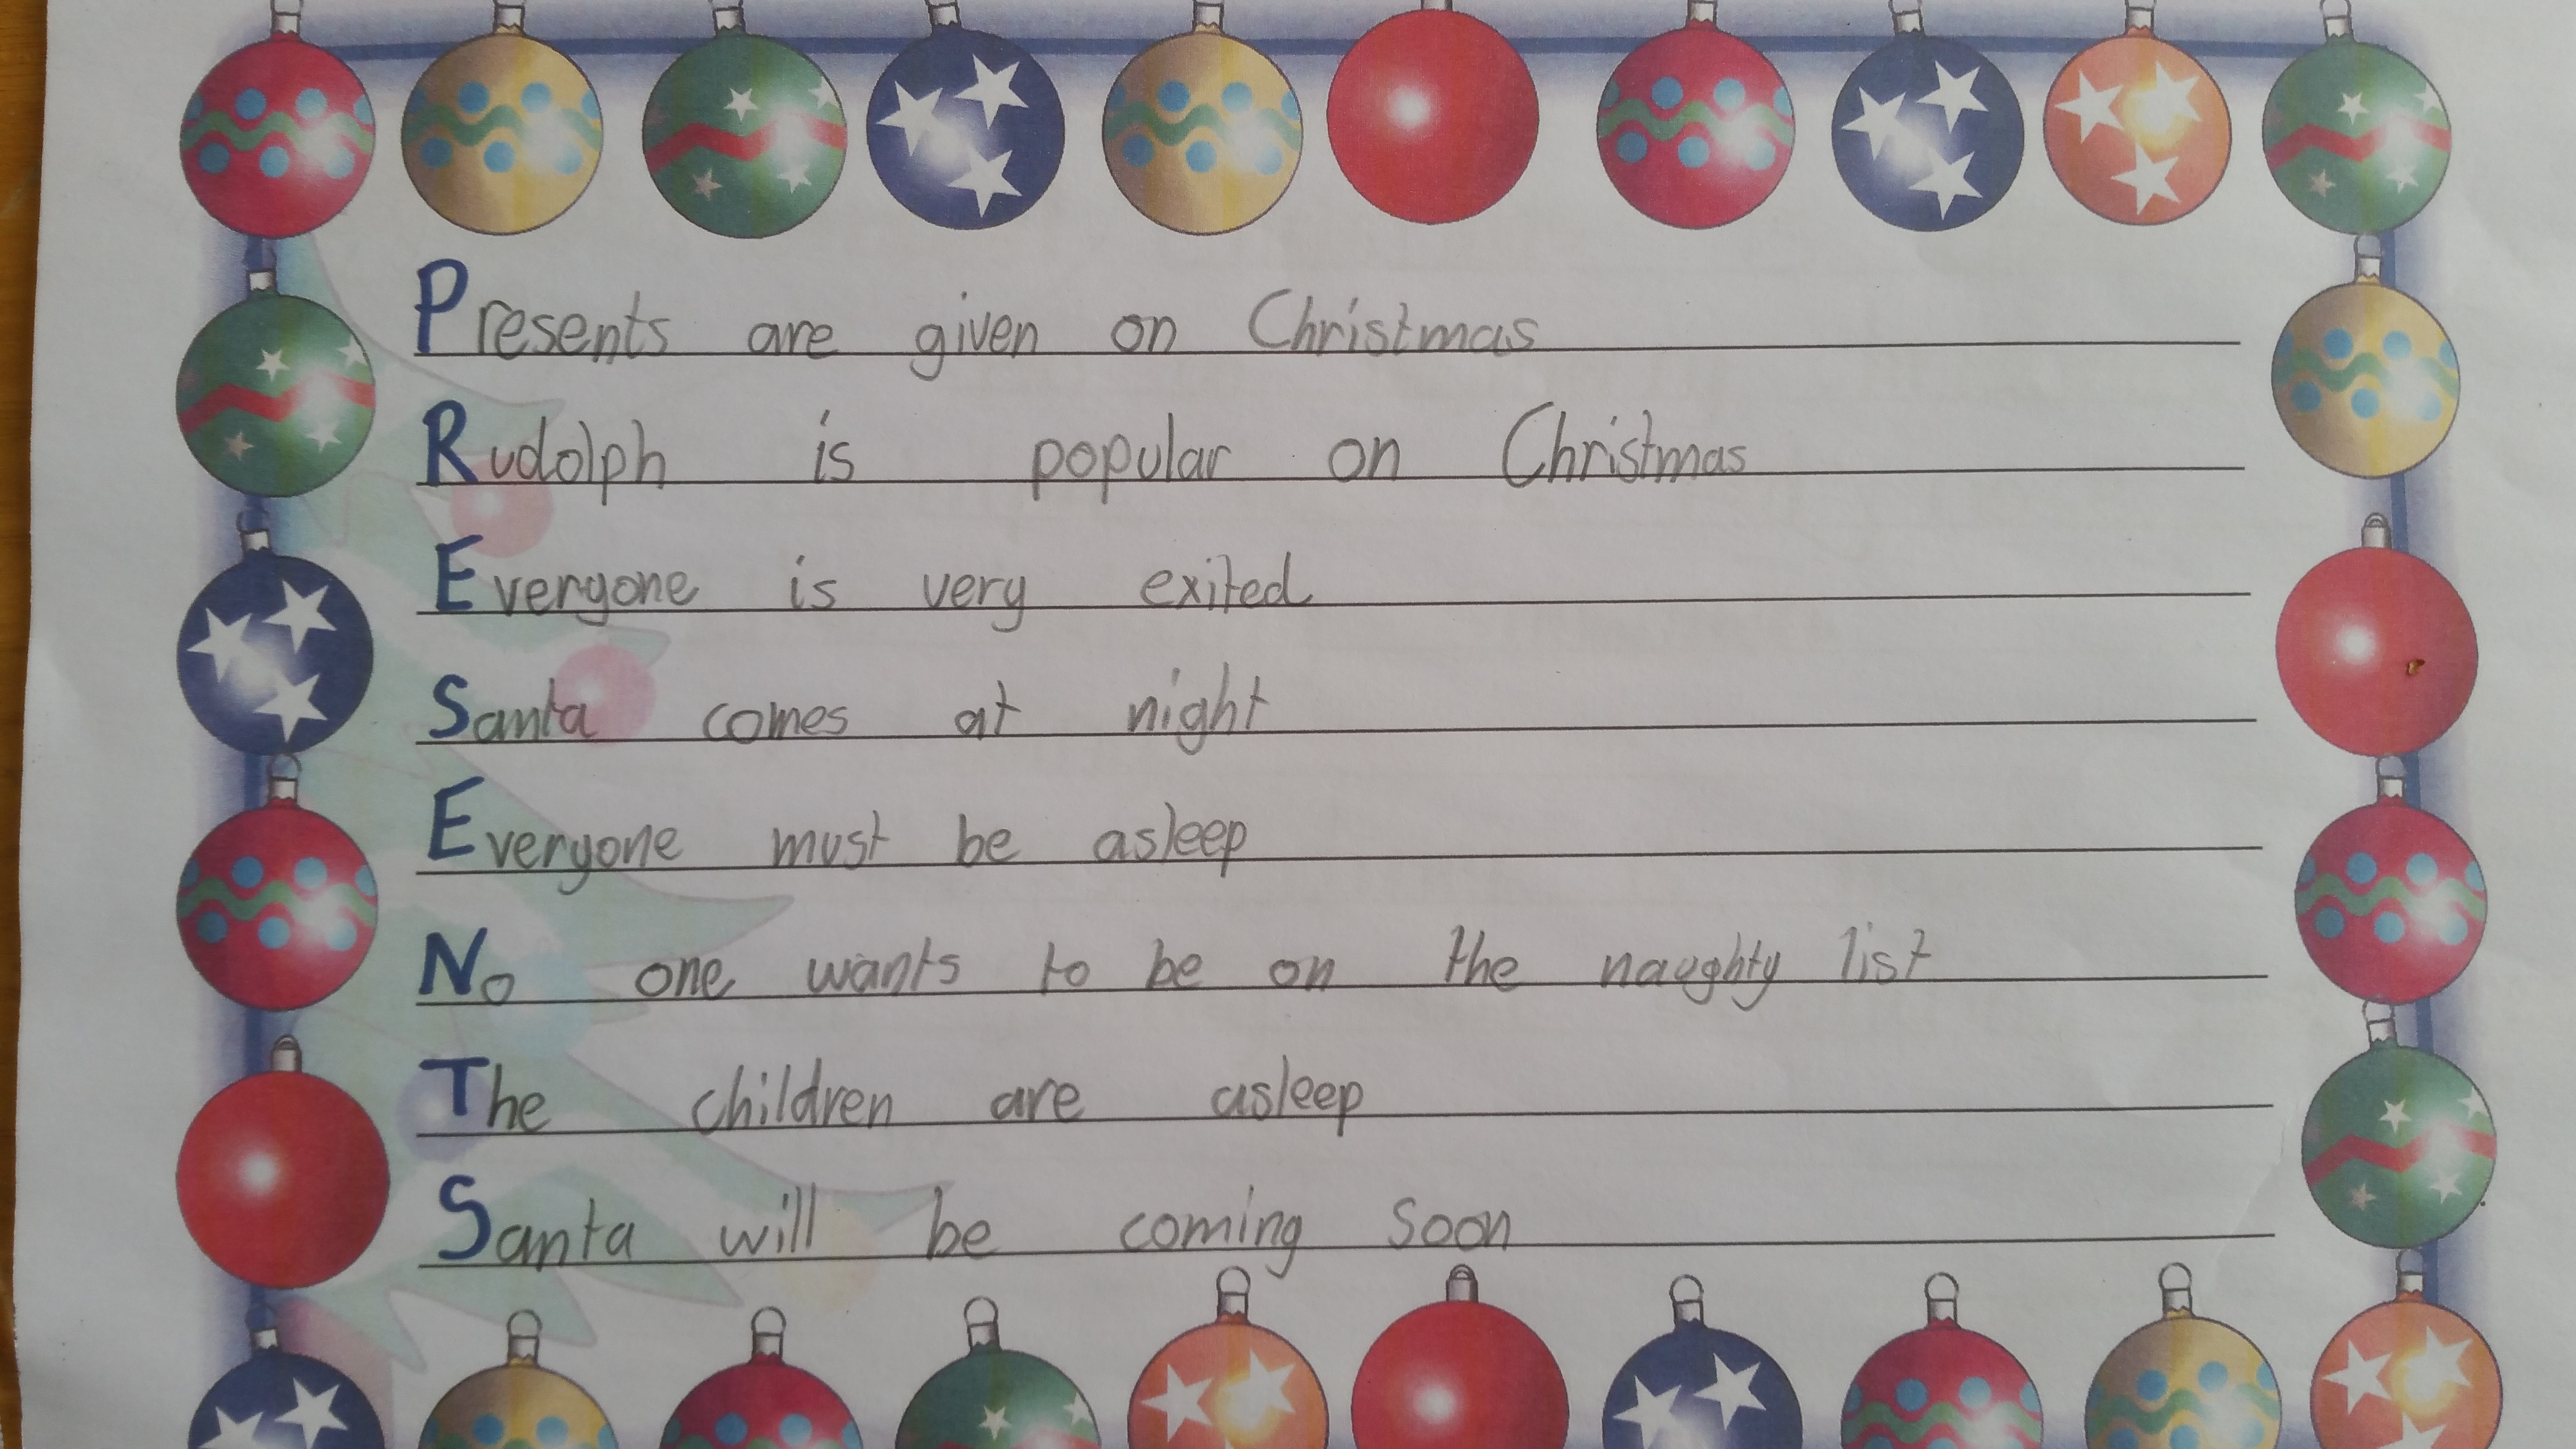 Presents are given on Christmas
Rudolph is popular on Christmas
Everyone is very exited
Santa comes at night
Everyone must be asleep
No one wants to be on the naughty list
The children are asleep
Santa will be coming soon